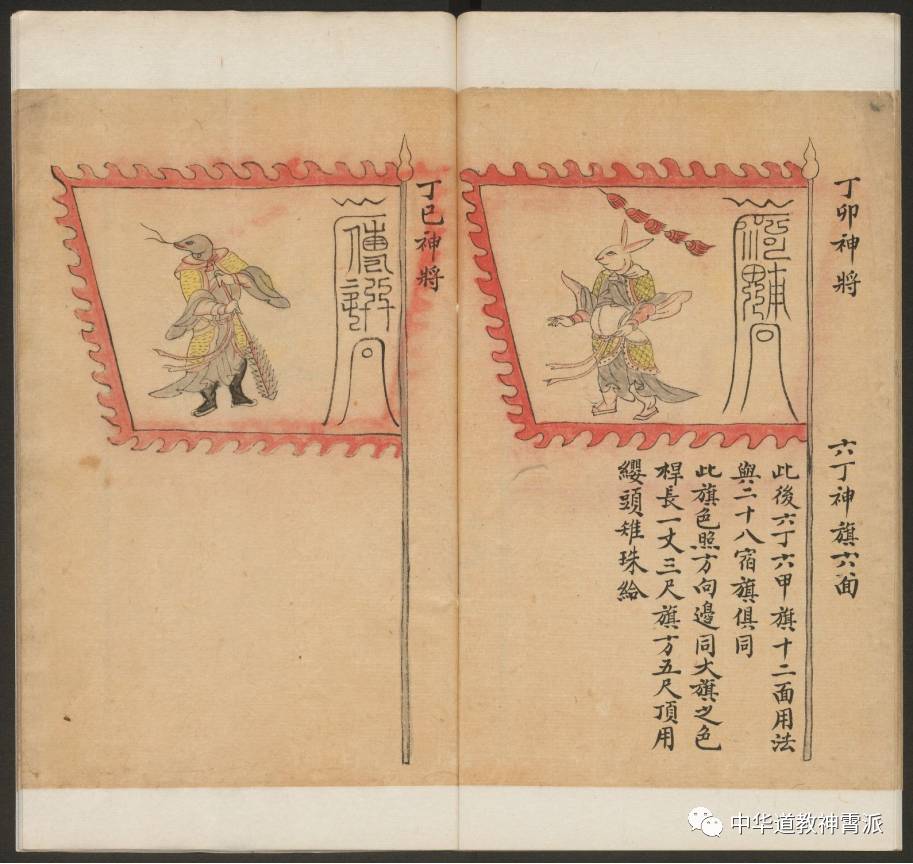 丁卯神將
六丁神旗六面
此後六丁六甲旗十二面用法
與二十八宿旗俱同
此旗色照方向邊同大旗之色
桿長一丈三尺旗方五尺頂用
纓頭雉珠給
丁巳神將
中华道教神霄派